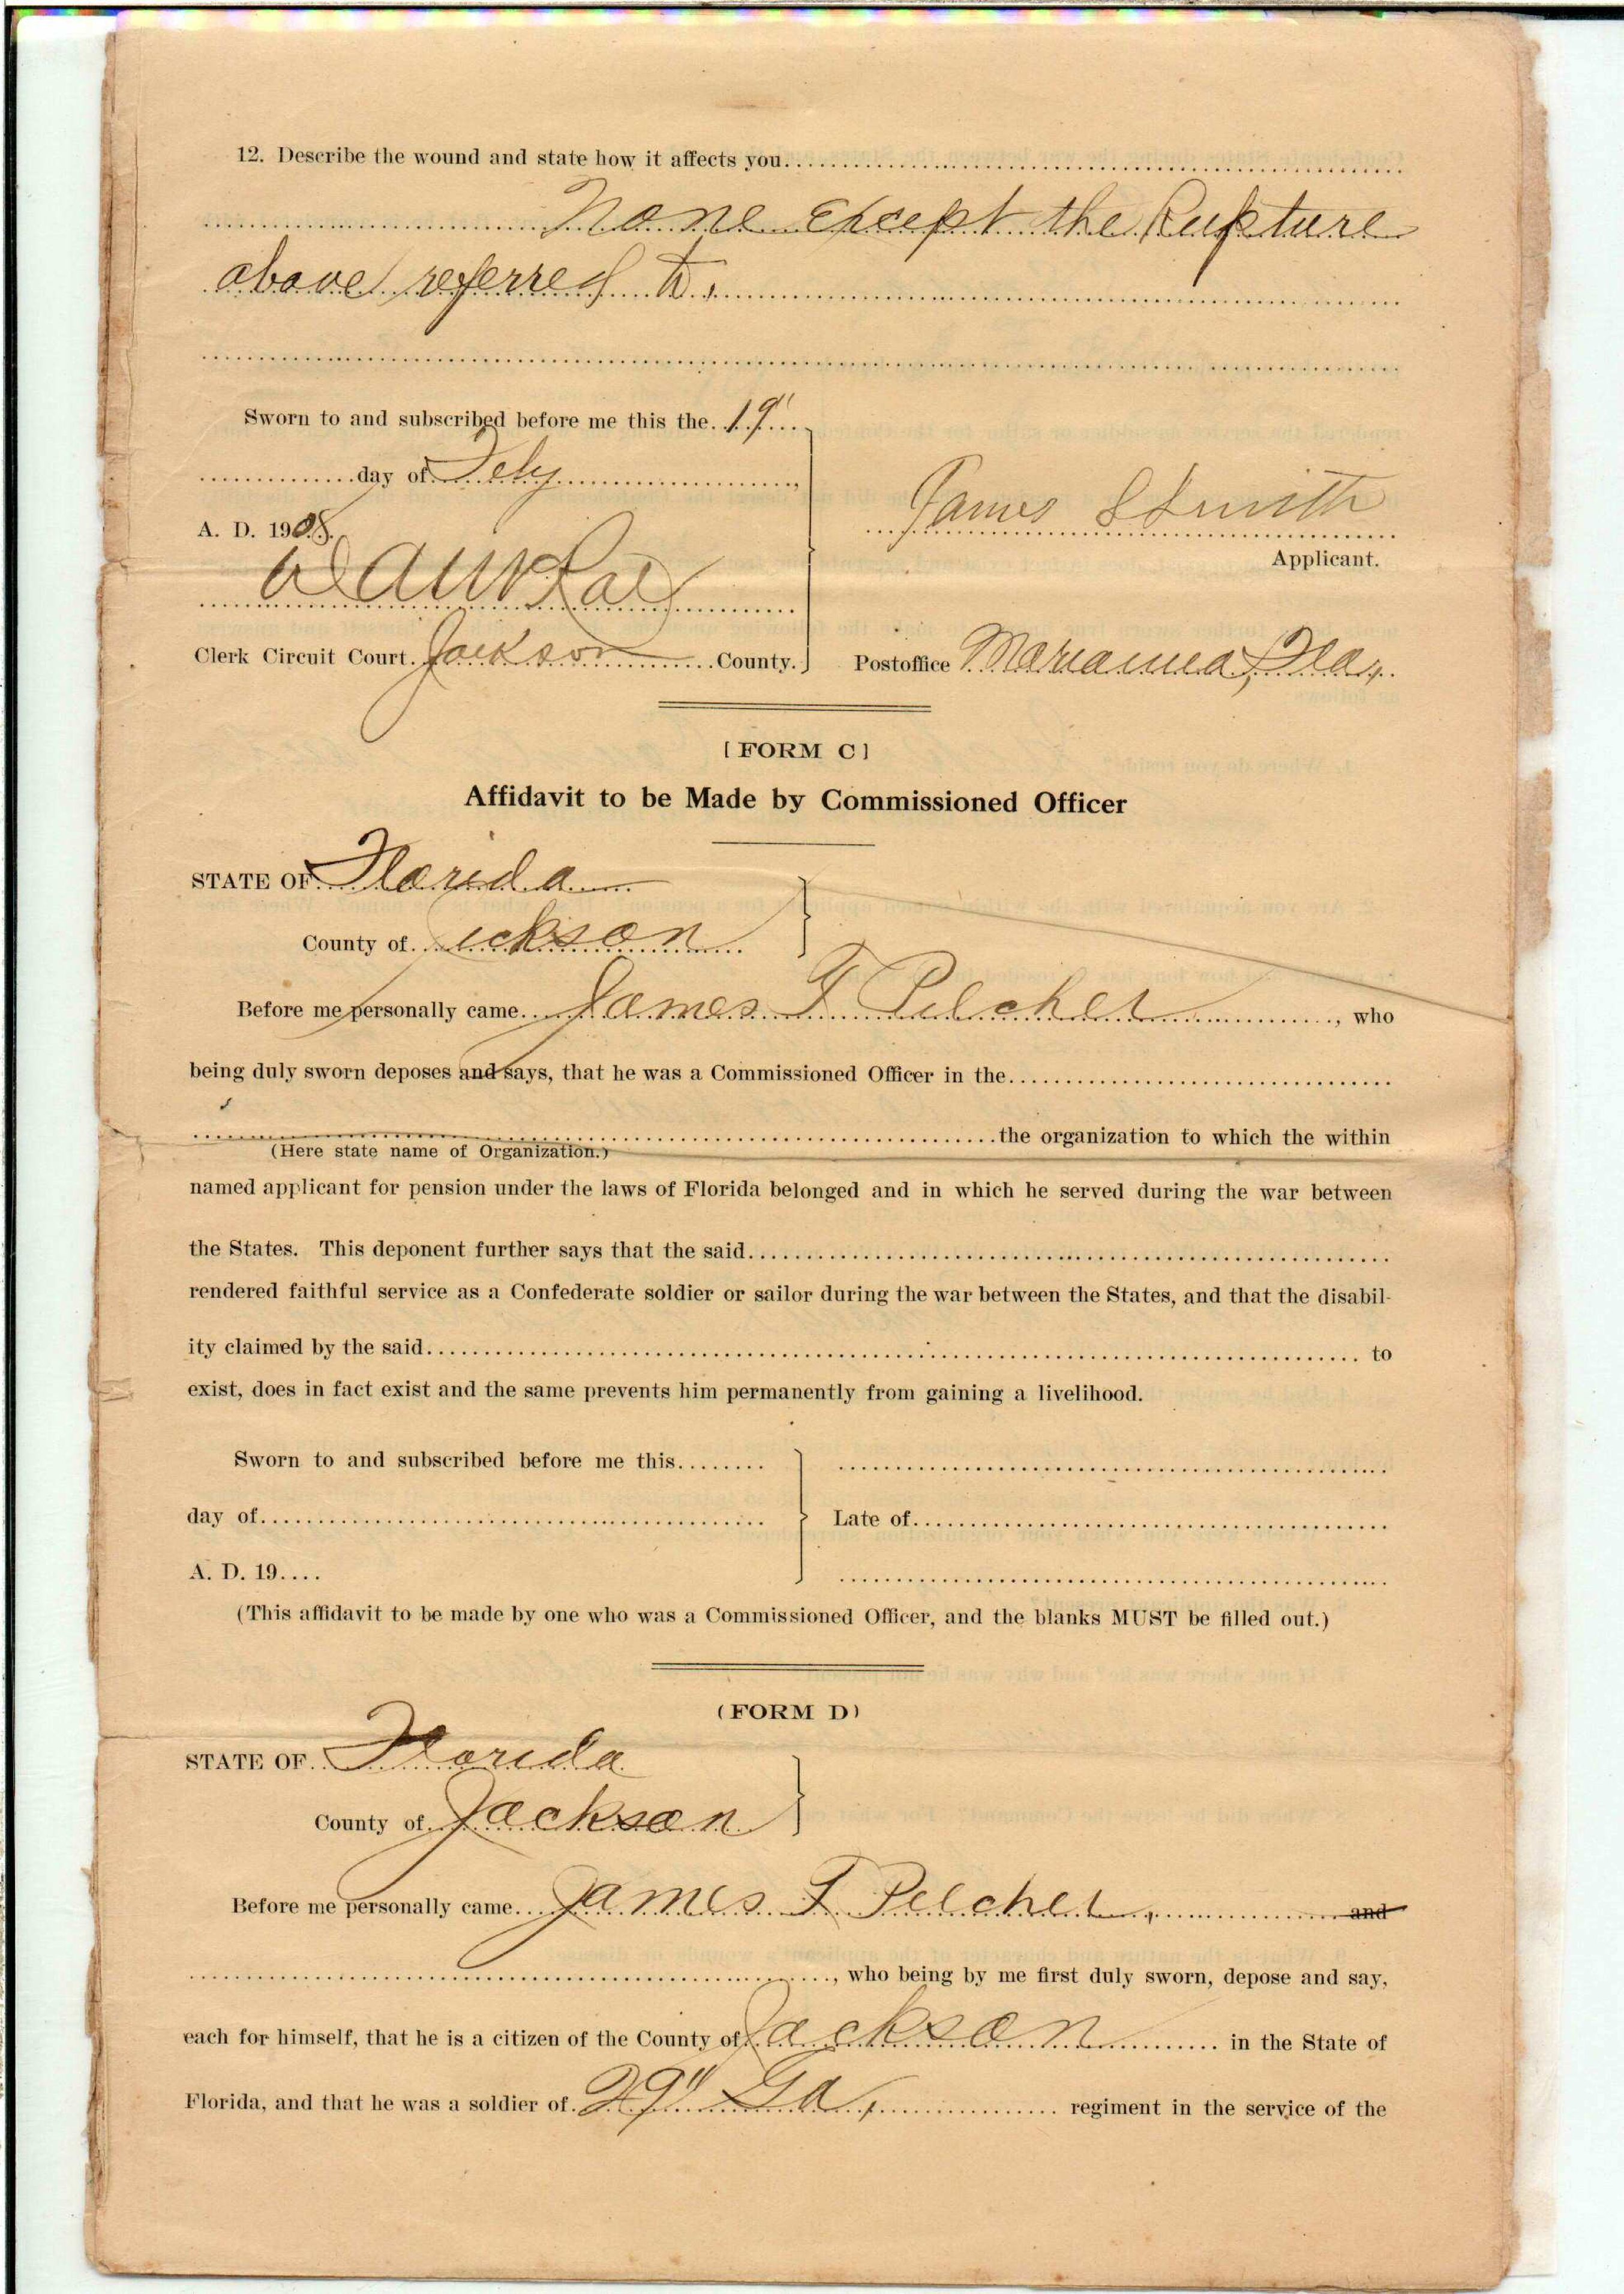 12. Describe the wound and state how it affects you
None except the Rupture
above referred to.
Sworn to and subscribed before me this the 19"
day of
A. D. 1908.
James S Smith
Applicant.
Clerk Circuit Court. Jackson County.
Postoffice Marianna, Fla,
[FORM C]
Affidavit to be Made by Commissioned Officer
STATE OF Florida
County of Jackson
Before me personally came James F Pilcher, who
being duly sworn deposes and says, that he was a Commissioned Officer in the
the organization to which the within
(Here state name of Organization.)
named applicant for pension under the laws of Florida belonged and in which he served during the war between
the States. This deponent further says that the said
rendered faithful service as a Confederate soldier or sailor during the war between the States, and that the disabil-
ity claimed by the said to
exist, does in fact exist and the same prevents him permanently from gaining a livelihood.
Sworn to and subscribed before me this
day of
Late of
A. D. 19
(This affidavit to be made by one who was a Commissioned Officer, and the blanks MUST be filled out.)
(FORM D)
STATE OF Florida
County of Jackson
Before me personally came James F Pilcher, and
, who being by me first duly sworn, depose and say,
each for himself, that he is a citizen of the County of Jackson in the State of
Florida, and that he was a soldier of 29" Ga, regiment in the service of the